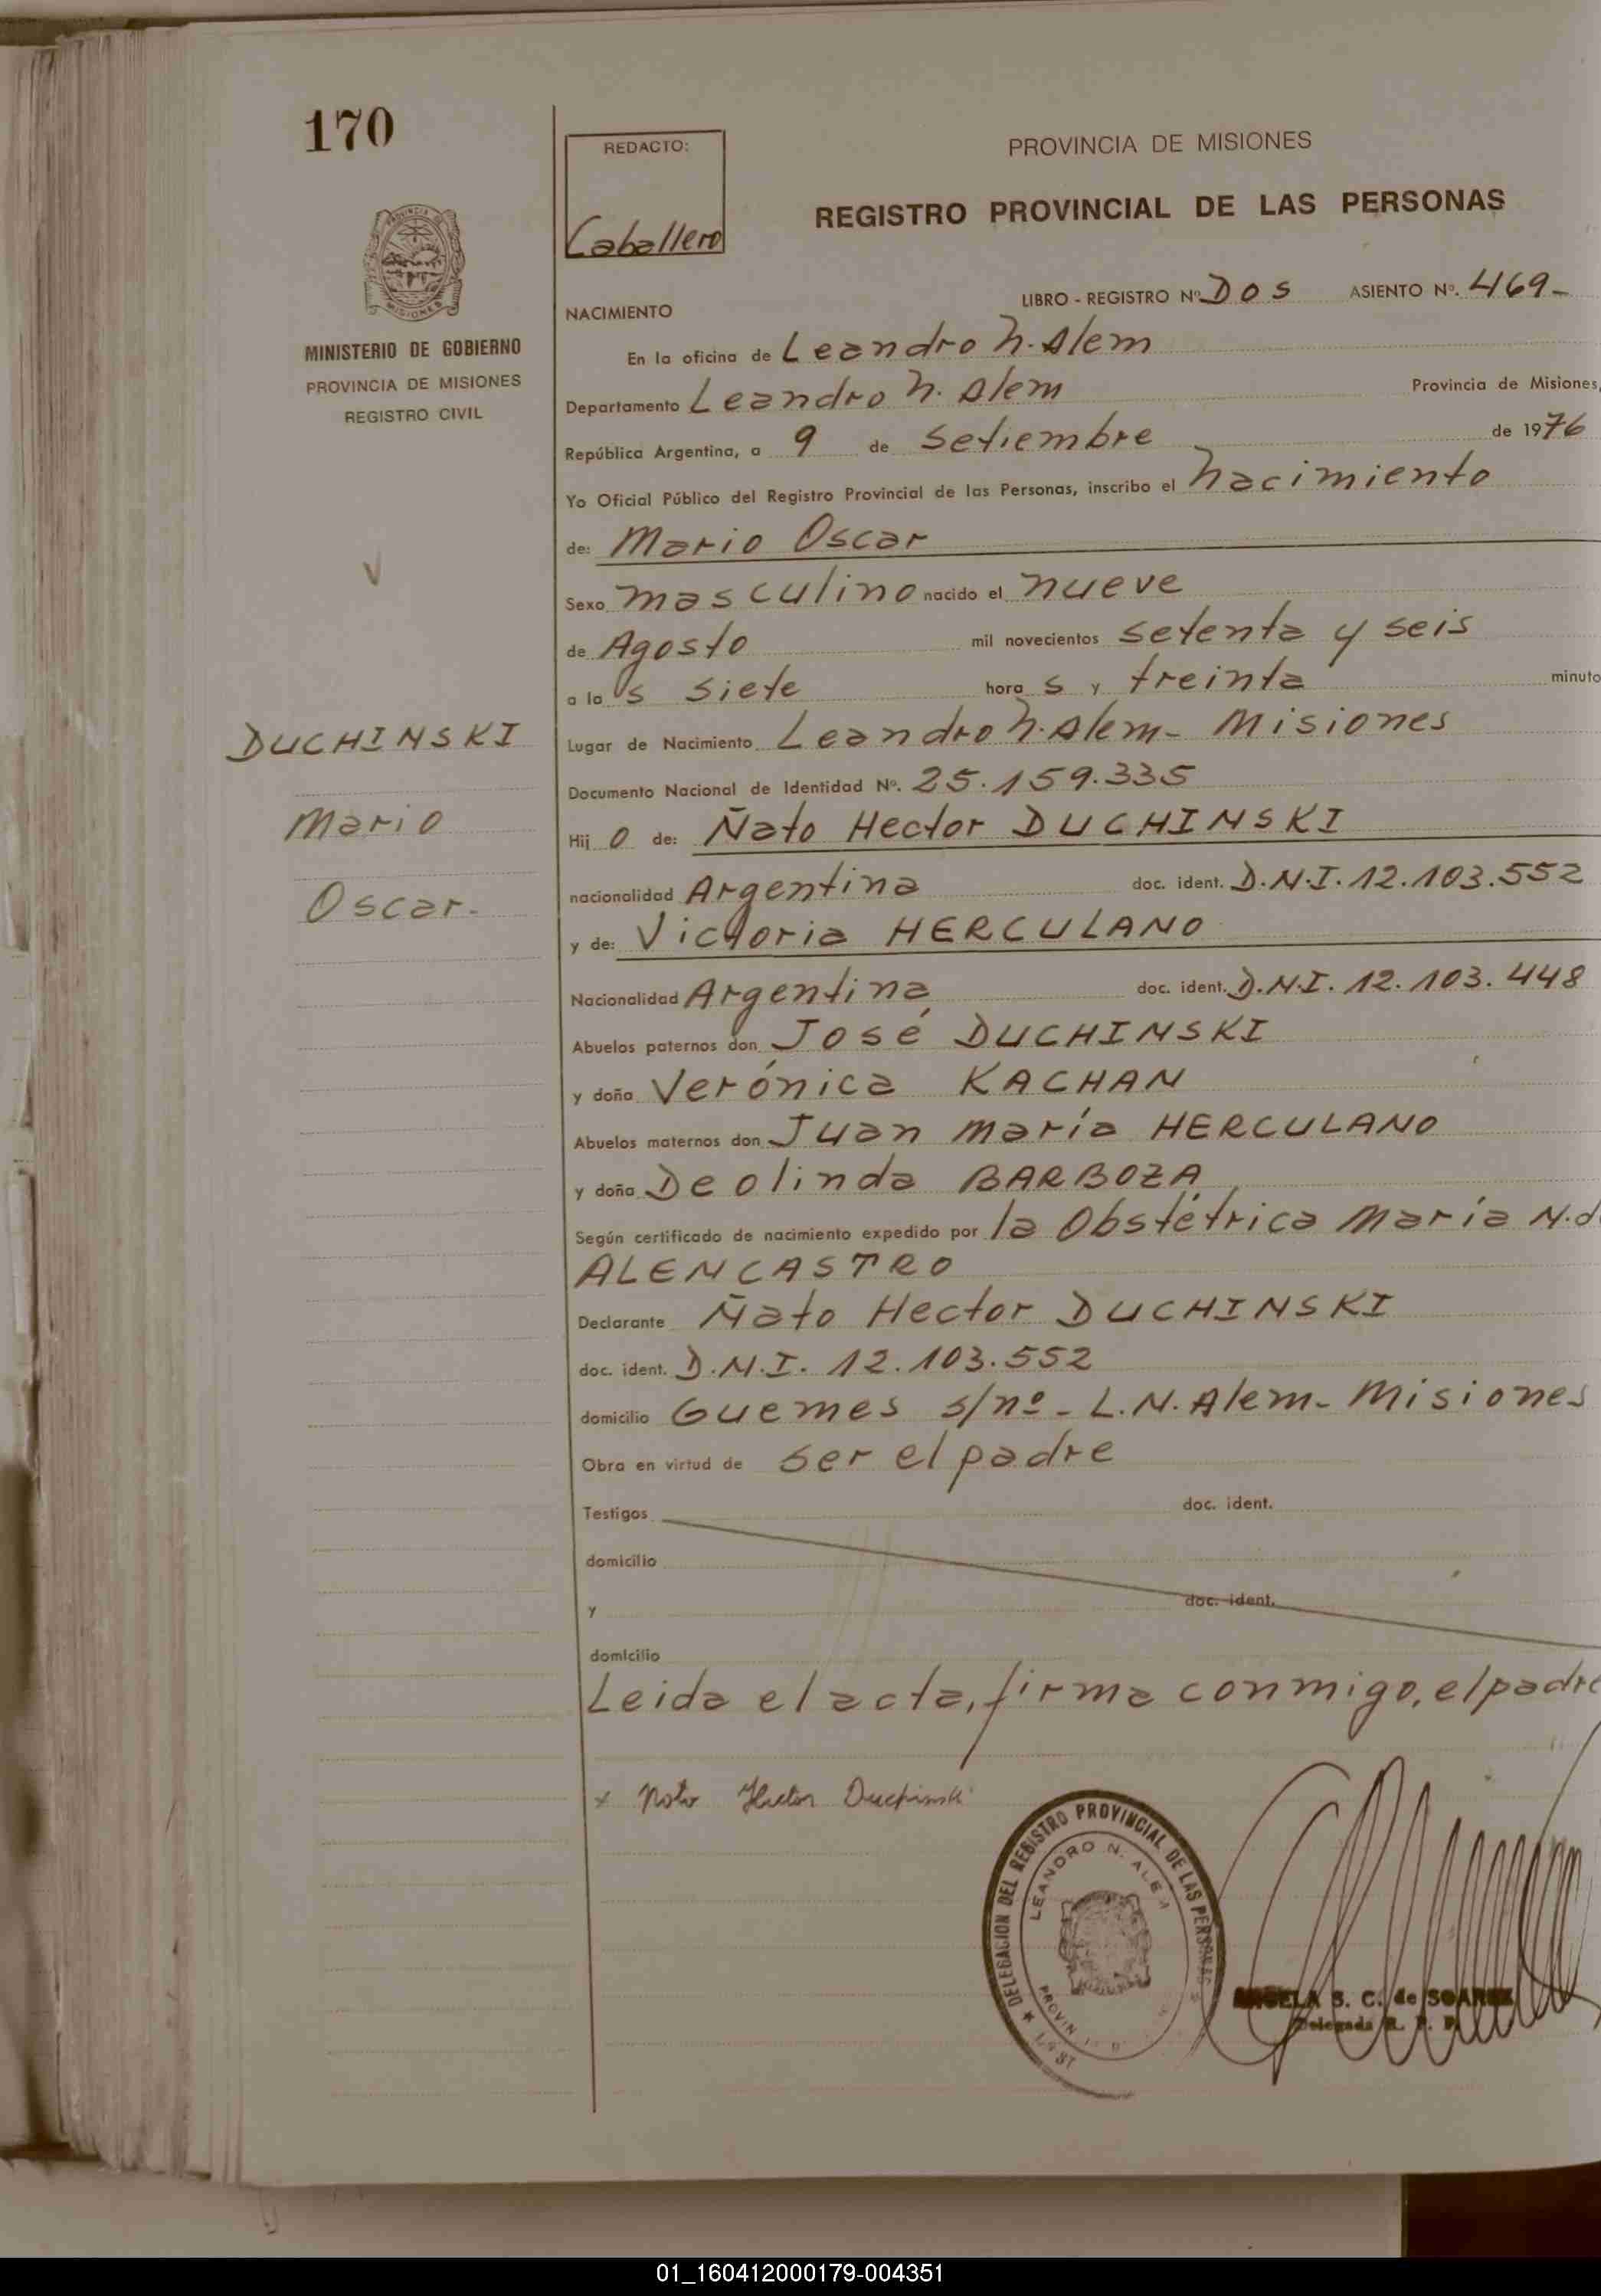 170
REDACTO:
Caballero
PROVINCIA DE MISIONES
REGISTRO PROVINCIAL DE LAS PERSONAS
MINISTERIO DE GOBIERNO
PROVINCIA DE MISIONES
REGISTRO CIVIL
LIBRO - REGISTRO Nº DOS ASIENTO Nº. 469-
NACIMIENTO
En la oficina de Leandro N. Alem
Departamento Leandro N. Alem Provincia de Misiones,
República Argentina, a 9 de Setiembre de 1976
Yo Oficial Público del Registro Provincial de las Personas, inscribo el nacimiento
de: Mario Oscar
Sexo masculino nacido el nueve
de Agosto mil novecientos setenta y seis
a las siete horas y treinta minuto
DUCHINSKI
Mario
Oscar.
Lugar de Nacimiento Leandro N. Alem - Misiones
Documento Nacional de Identidad Nº. 25.159.335
Hijo de: Ñato Hector DUCHINSKI
nacionalidad Argentina doc. ident. D.N.I. 12.103.552
y de: Victoria HERCULANO
Nacionalidad Argentina doc. ident. D.N.I. 12.103.448
Abuelos paternos don José DUCHINSKI
y doña Verónica KACHAN
Abuelos maternos don Juan María HERCULANO
y doña Deolinda BARBOZA
Según certificado de nacimiento expedido por la Obstétrica María N. d
ALENCASTRO
Declarante Ñato Hector DUCHINSKI
doc. ident. D.N.I. 12.103.552
domicilio Guemes s/nº - L.N. Alem - Misiones
Obra en virtud de ser el padre
Testigos doc. ident.
domicilio
y doc. ident.
domicilio
Leida el acta, firma conmigo, el padre
x Ñato Hector Duchinski
DELEGACION DEL REGISTRO PROVINCIAL DE LAS PERSONAS
LEANDRO N. ALEM
ANGELA S. C. de SOAREZ
Delegada R. P. P.
01_160412000179-004351